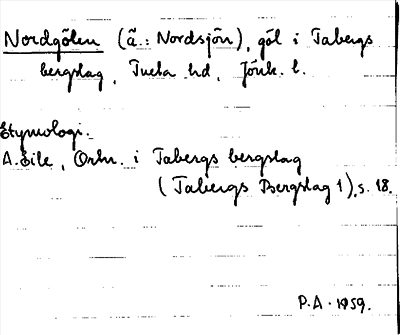 Nordgölen (ä.: Nordsjön), göl i Tabergs
bergslag, Tveta hd, Jönk. l.
Etymologi.
A. Eile, Ortn. i Tabergs bergslag
(Tabergs Bergslag 1), s. 18.
P.A. 1959.